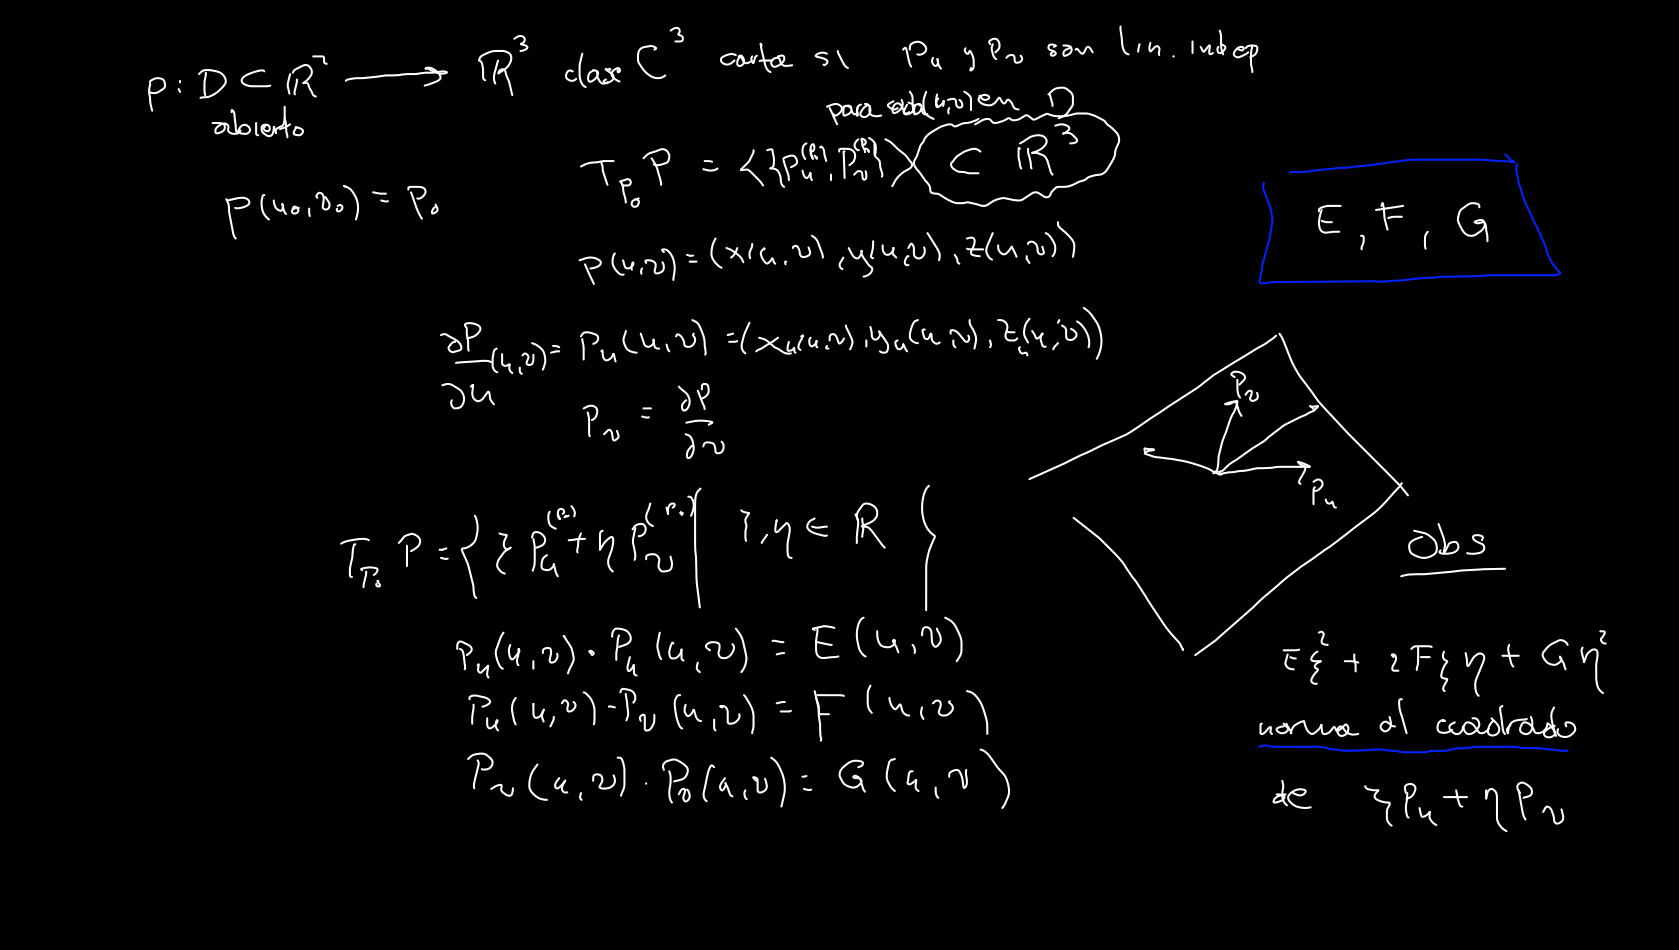 P : D ⊂ ℝ² ⟶ ℝ³ clase C³ carta si P_u y P_v son lin. indep
abierto
para cada (u,v) en D
P(u₀,v₀) = P₀
T_{P₀} P = <{P_u^{(P₀)}, P_v^{(P₀)}}> ⊂ ℝ³
E, F, G
P(u,v) = (x(u,v), y(u,v), z(u,v))
∂P/∂u (u,v) = P_u(u,v) = (x_u(u,v), y_u(u,v), z_u(u,v))
P_v = ∂P/∂v
P_v
P_u
T_{P₀} P = { ξ P_u^{(P₀)} + η P_v^{(P₀)} | ξ, η ∈ ℝ }
P_u(u,v) · P_u(u,v) = E(u,v)
P_u(u,v) · P_v(u,v) = F(u,v)
P_v(u,v) · P_v(u,v) = G(u,v)
obs
Eξ² + 2Fξη + Gη²
norma al cuadrado
de ξP_u + ηP_v